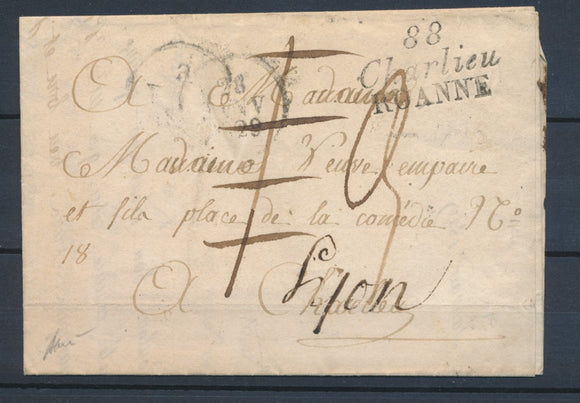 88
Charlieu
ROANNE
28
29
A Madame
Madame Veuve empaire
et fils place de la comédie No
18
A
Lyon